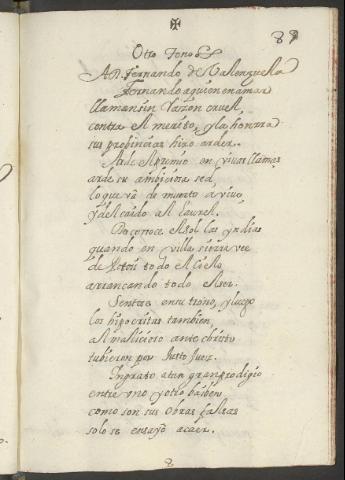 89
Otro tono
A D. Fernando de Valenzuela
Fernando a quien en amar
llaman sin razon cruel
contra el merito, y la honrra
sus probincias hizo arder.
Arde el premio en vivas llamas
arde su ambiciosa sed
lo que vá de muerto a vivo
y del caido al laurel.
Reconoce el sol las yndias
quando en villa sierra vee
de todo el cielo
arrancando todo el ser.
Sentose en su trono, y luego
los hipocritas tambien
al malicioso ante christo
tubieron por Justo Juez.
Yngrato a tan gran prodigio
entre uno y otro baiben
como son sus obras falsas
solo se ensayó a caer.